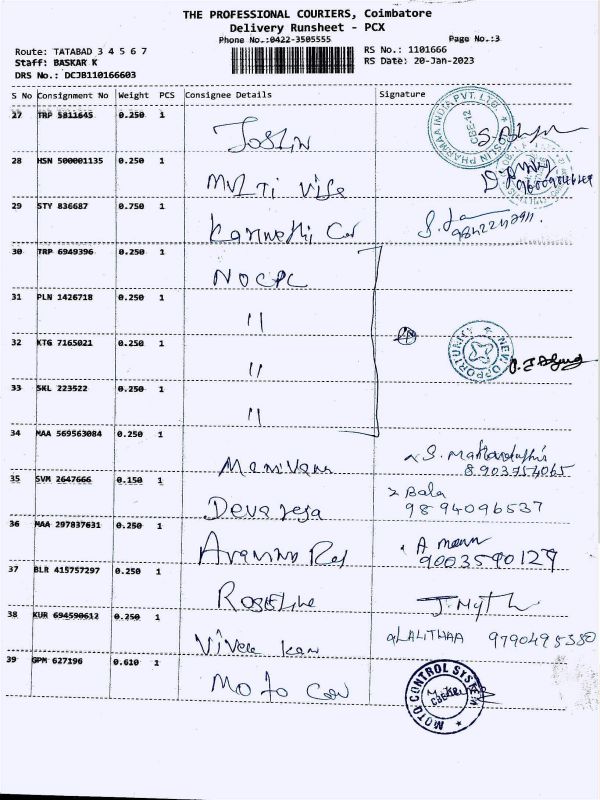 THE PROFESSIONAL COURIERS, Coimbatore
Delivery Runsheet - PCX
Phone No.:0422-3505555
Page No.:3
Route: TATABAD 3 4 5 6 7
Staff: BASKAR K
DRS No.: DCJB110166603
RS No.: 1101666
RS Date: 20-Jan-2023
S No Consignment No Weight PCS Consignee Details Signature
27 TRP 5811645 0.250 1
Joslin
JOSLIN PHARMA INDIA PVT. LTD. CBE-12
28 HSN 500001135 0.250 1
Multi Vise
29 STY 836687 0.750 1
30 TRP 6949396 0.250 1
NOCPC
31 PLN 1426718 0.250 1
"
32 KTG 7165021 0.250 1
"
NEW OPPORTUNITY
33 SKL 223522 0.250 1
"
34 MAA 569563084 0.250 1
Manivann
8903754065
35 SVM 2647666 0.150 1
Devaraja
Bala
9894096537
36 MAA 297837631 0.250 1
9003590129
37 BLR 415757297 0.250 1
Roseline
38 KUR 694590612 0.250 1
Vivek
LALITHAA 9790495380
39 GPM 627196 0.610 1
Moto Con
MOTO CONTROL SYSTEM